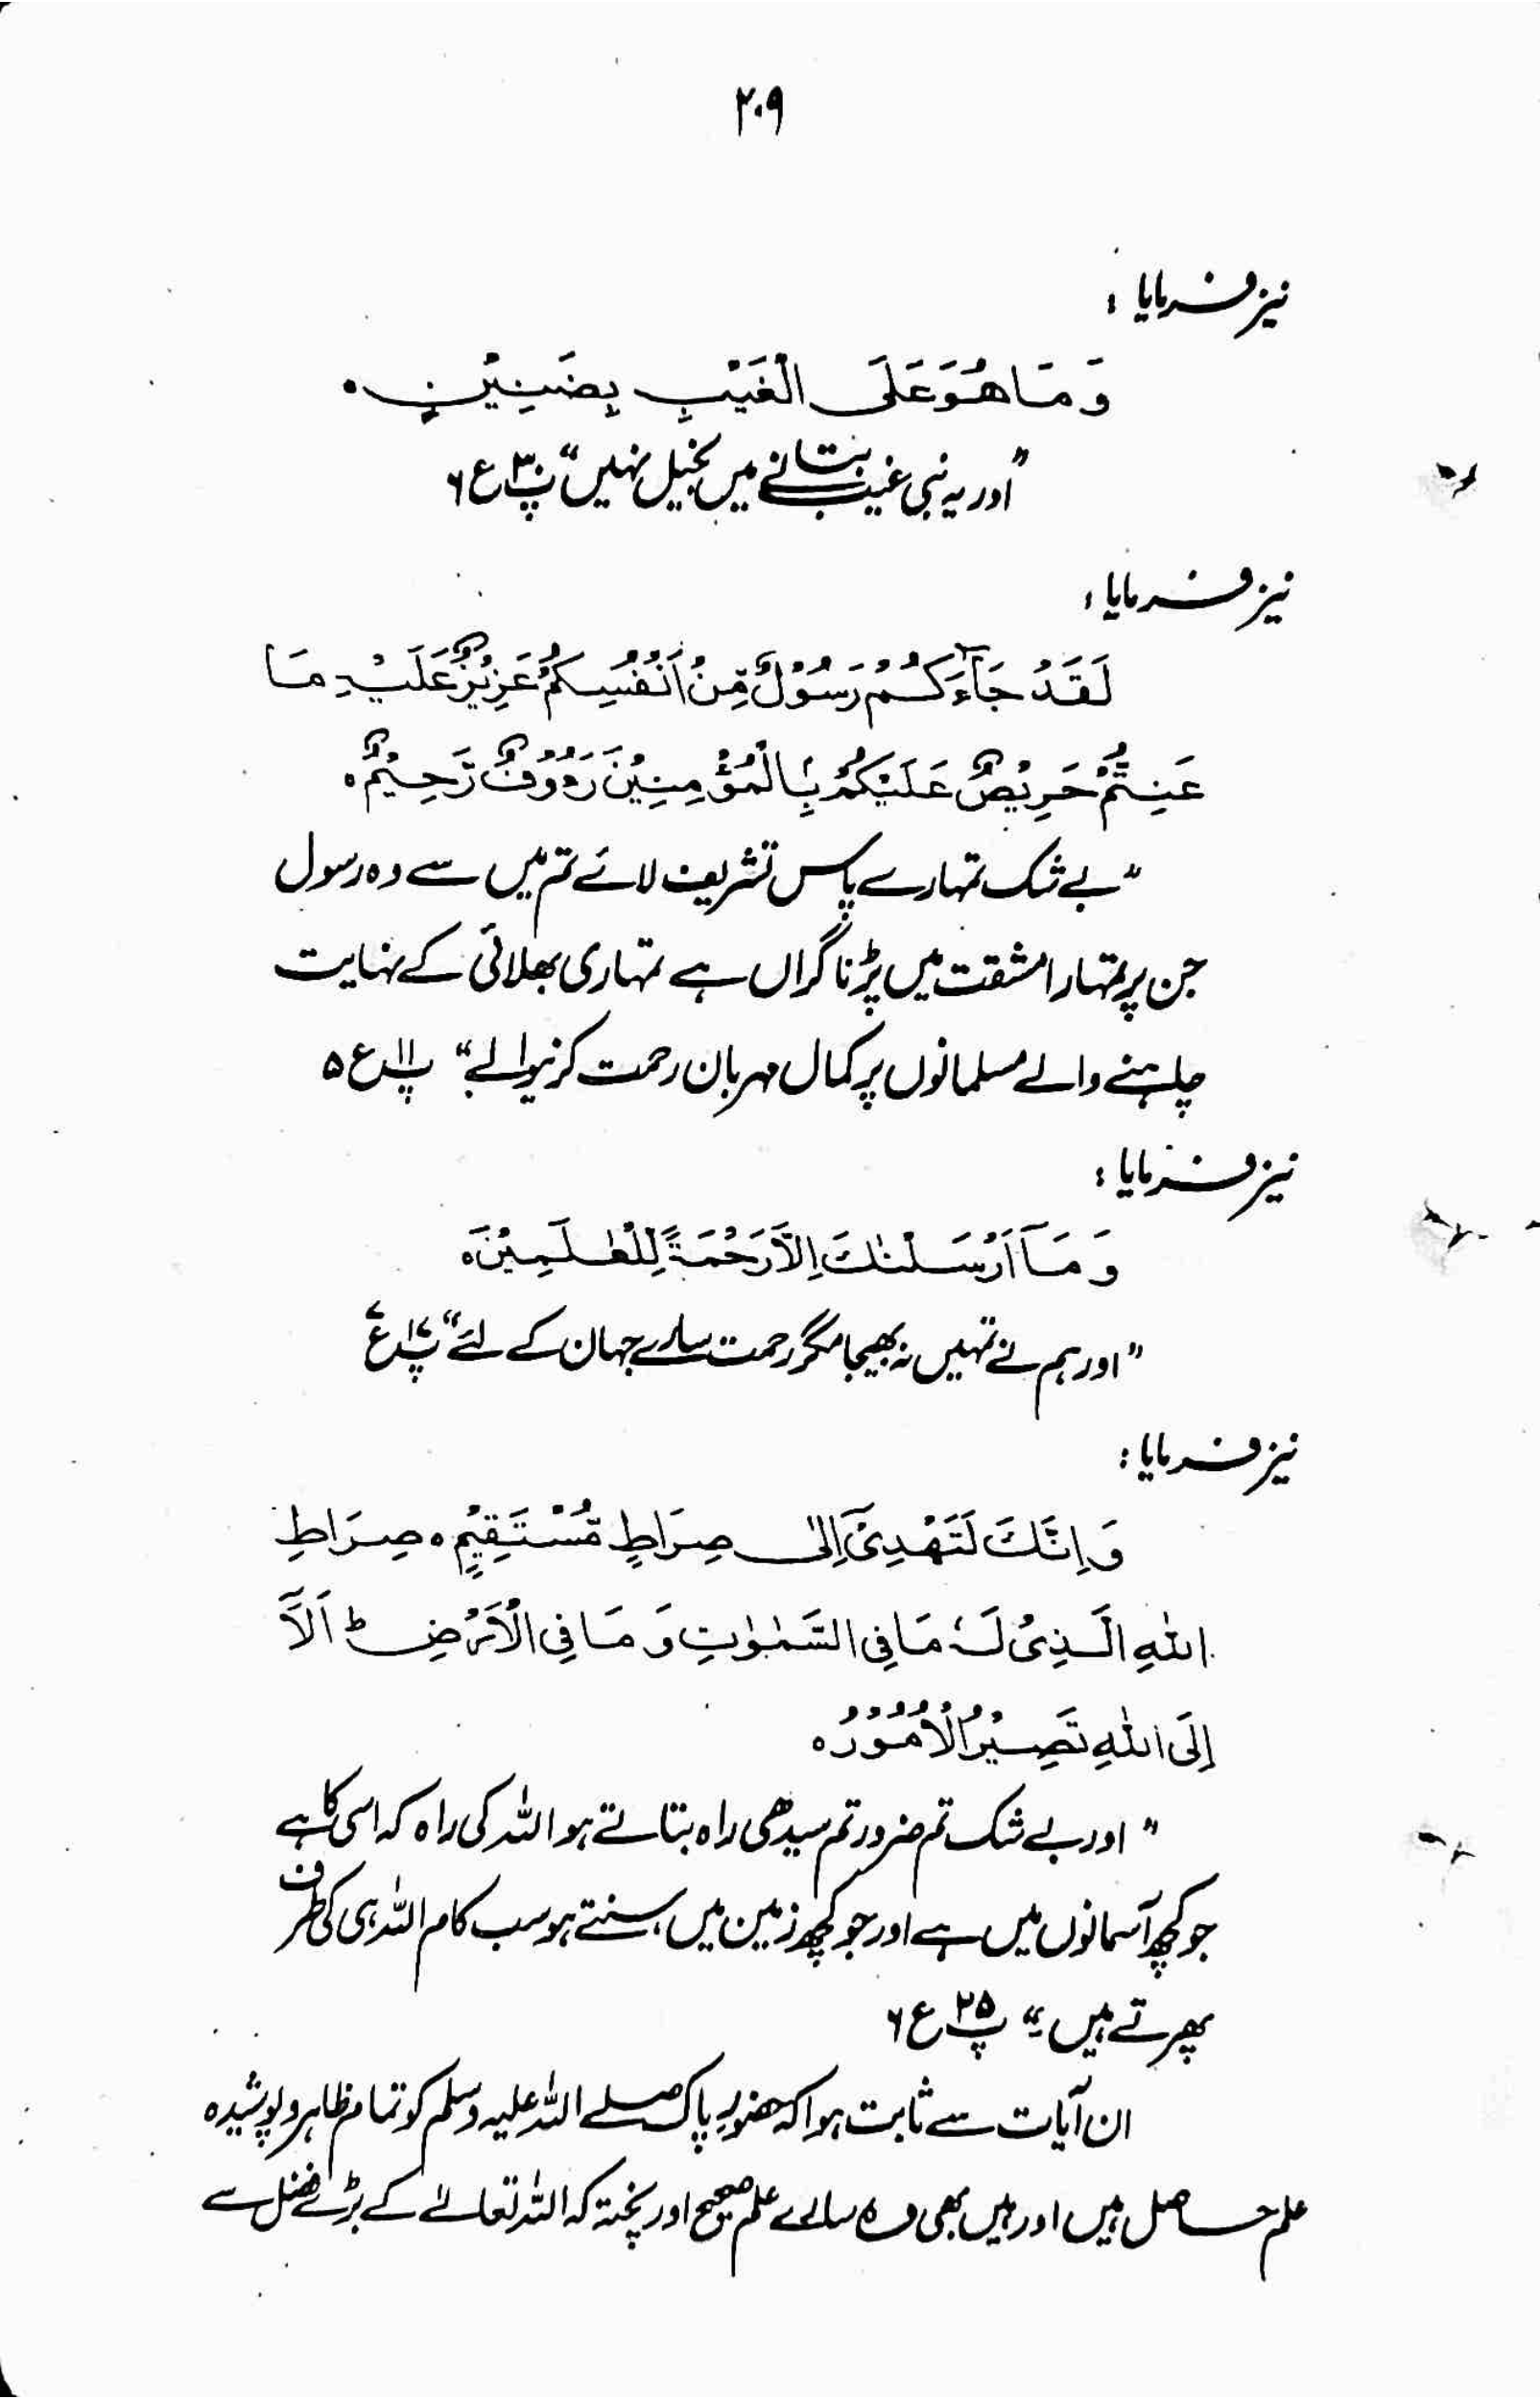 ۲۰۹
نیز فرمایا :
وَ مَا هُوَ عَلَی الْغَیْبِ بِضَنِیْنٍ ۰
”اور یہ نبی غیب بتانے میں بخیل نہیں“ پ۳۰ ع ۶
نیز فرمایا :
لَقَدْ جَآءَکُمْ رَسُوْلٌ مِّنْ اَنْفُسِکُمْ عَزِیْزٌ عَلَیْہِ مَا
عَنِتُّمْ حَرِیْصٌ عَلَیْکُمْ بِالْمُؤْمِنِیْنَ رَءُوْفٌ رَّحِیْمٌ ۰
”بے شک تمہارے پاس تشریف لائے تم میں سے وہ رسول
جن پر تمہارا مشقت میں پڑنا گراں ہے تمہاری بھلائی کے نہایت
چاہنے والے مسلمانوں پر کمال مہربان رحمت کرنیوالے“ پ۱۱ ع ۵
نیز فرمایا :
وَ مَآ اَرْسَلْنٰکَ اِلَّا رَحْمَۃً لِّلْعٰلَمِیْنَ ۰
”اور ہم نے تمہیں نہ بھیجا مگر رحمت سارے جہان کے لئے“ پ۱۷ ع ۷
نیز فرمایا :
وَ اِنَّکَ لَتَھْدِیْٓ اِلٰی صِرَاطٍ مُّسْتَقِیْمٍ ۰ صِرَاطِ
اللہِ الَّذِیْ لَہٗ مَا فِی السَّمٰوٰتِ وَ مَا فِی الْاَرْضِ ط اَلَآ
اِلَی اللہِ تَصِیْرُ الْاُمُوْرُ ۰
”اور بے شک تم ضرور تم سیدھی راہ بتاتے ہو اللہ کی راہ کہ اسی کا ہے
جو کچھ آسمانوں میں ہے اور جو کچھ زمین میں، سنتے ہو سب کام اللہ ہی کی طرف
پھرتے ہیں۔“ پ۲۵ ع ۶
ان آیات سے ثابت ہوا کہ حضورِ پاک صلے اللہ علیہ وسلم کو تمام ظاہر و پوشیدہ
علم حاصل ہیں اور ہیں بھی وہ سارے علم صحیح اور پختہ کہ اللہ تعالےٰ کے بڑے فضل سے